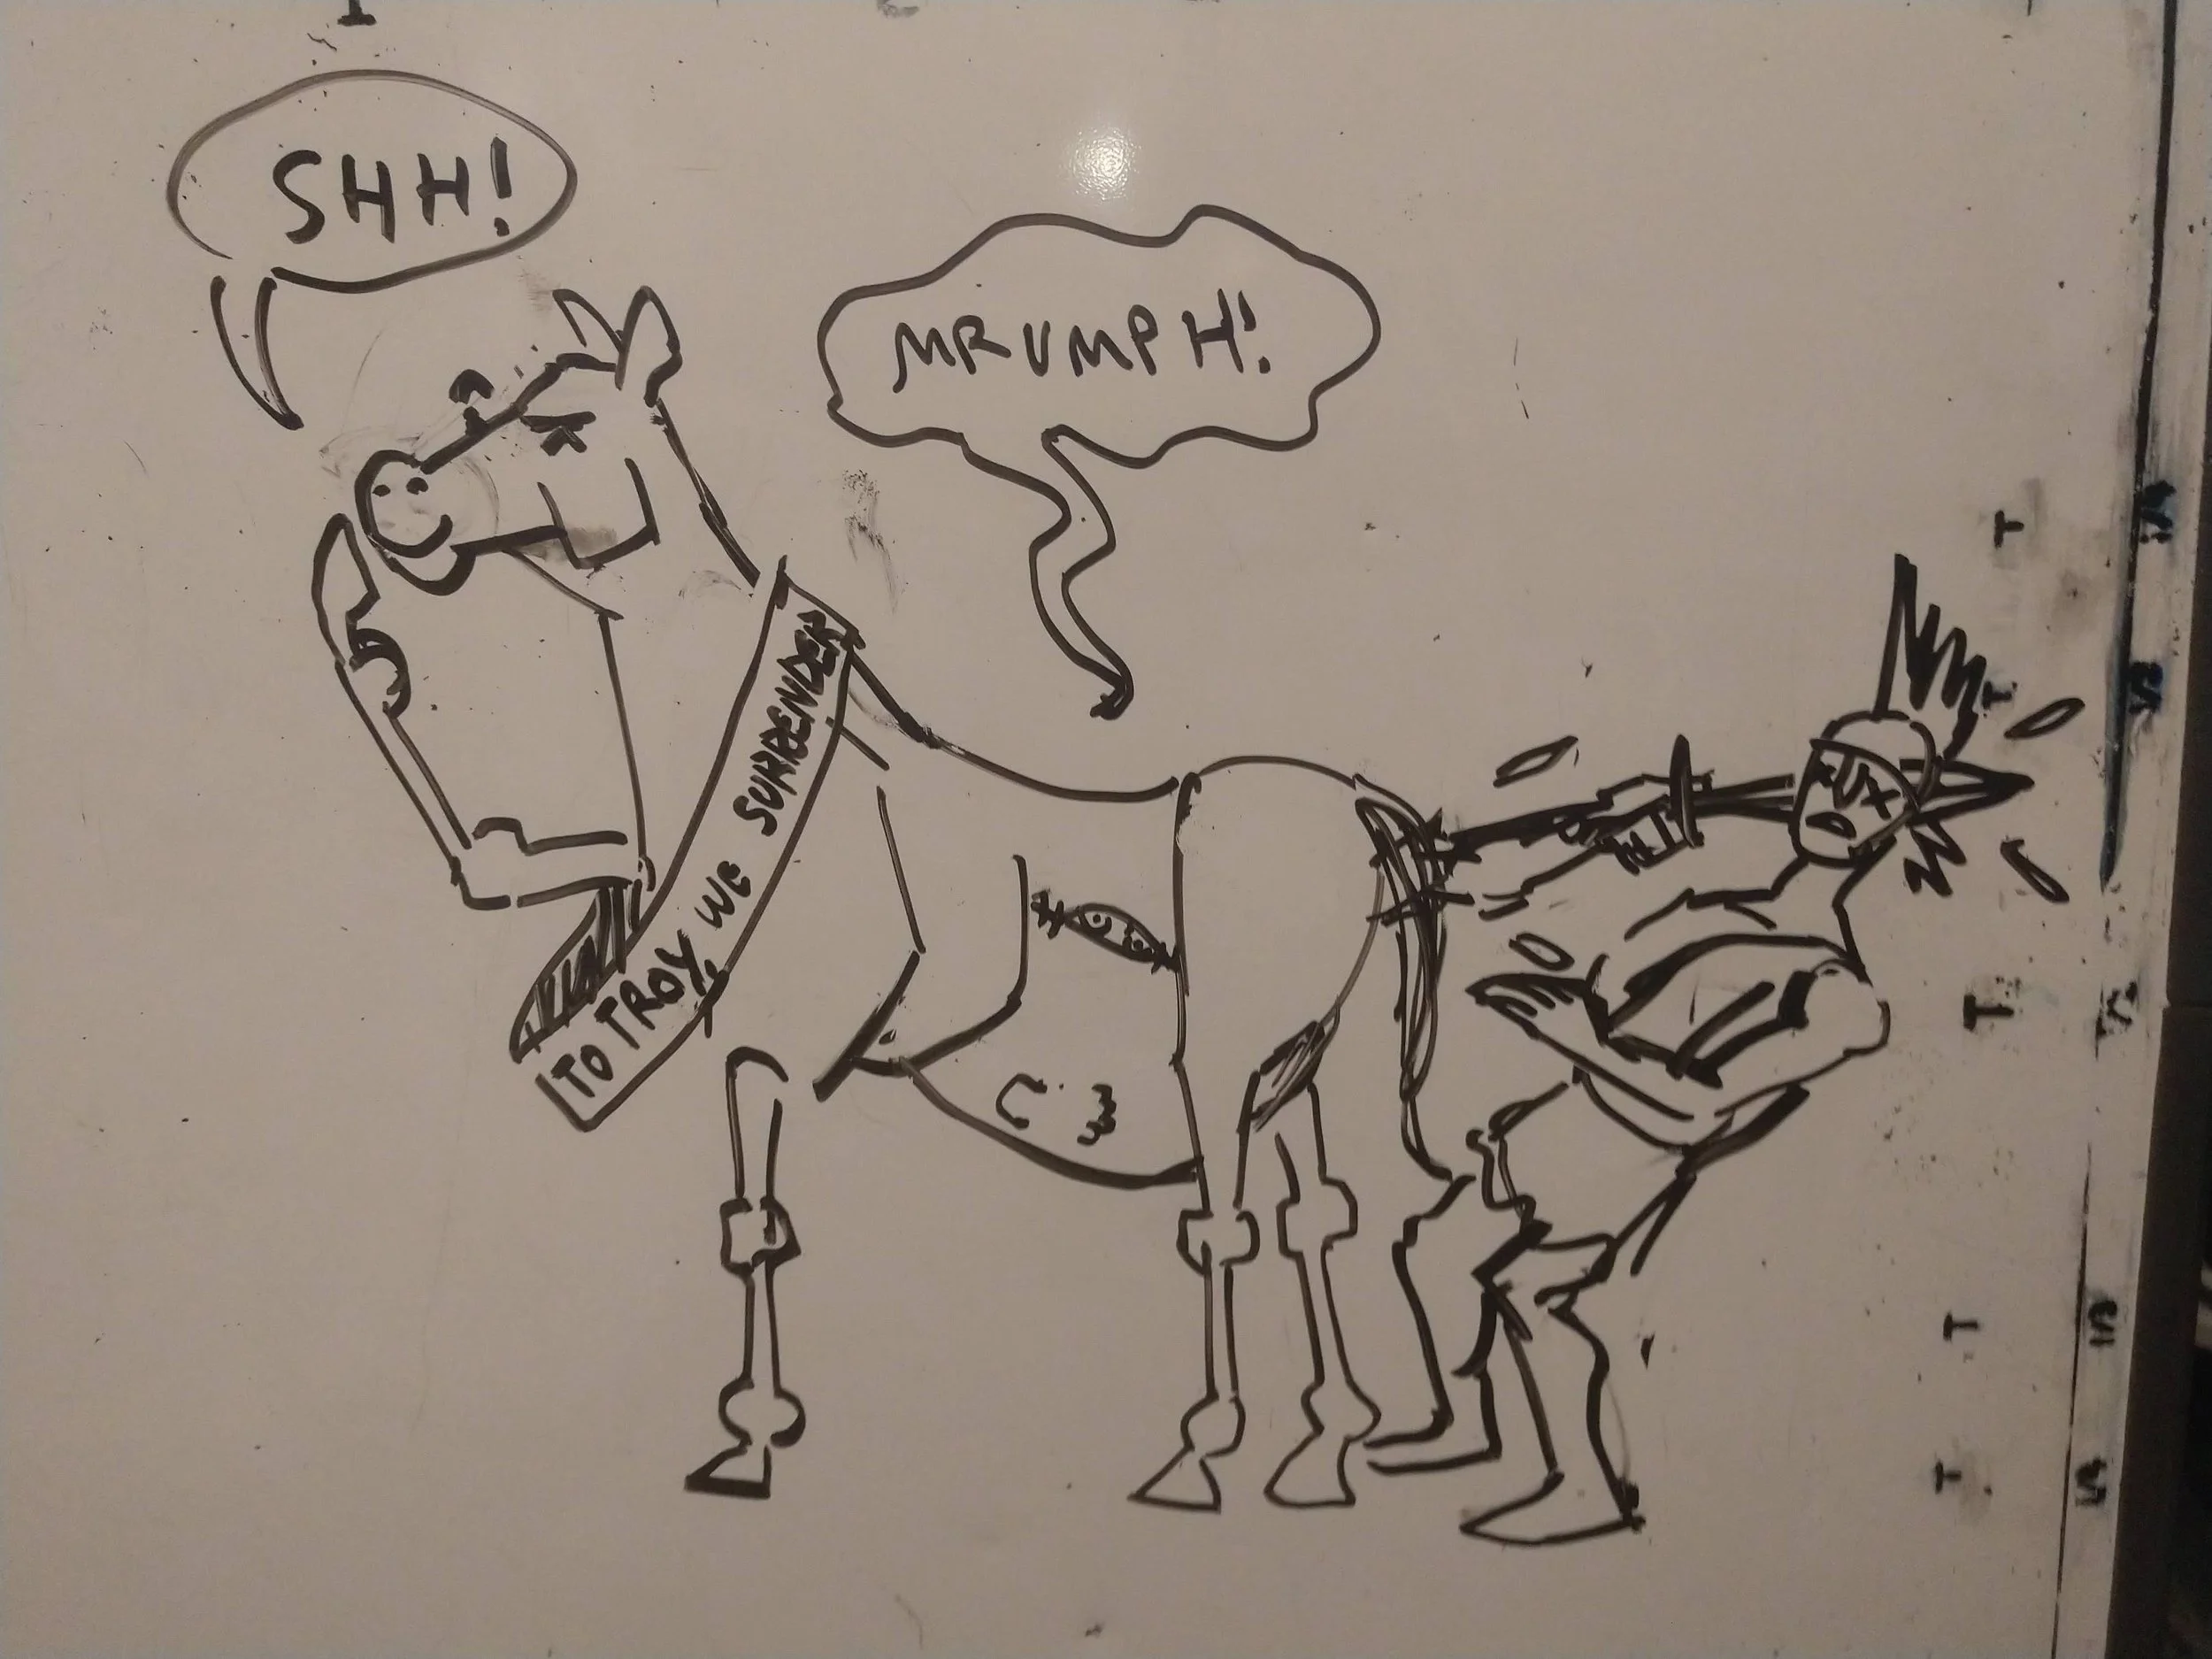 SHH!
MRUMPH!
TO TROY, WE SURRENDER
T
T
T
T
T